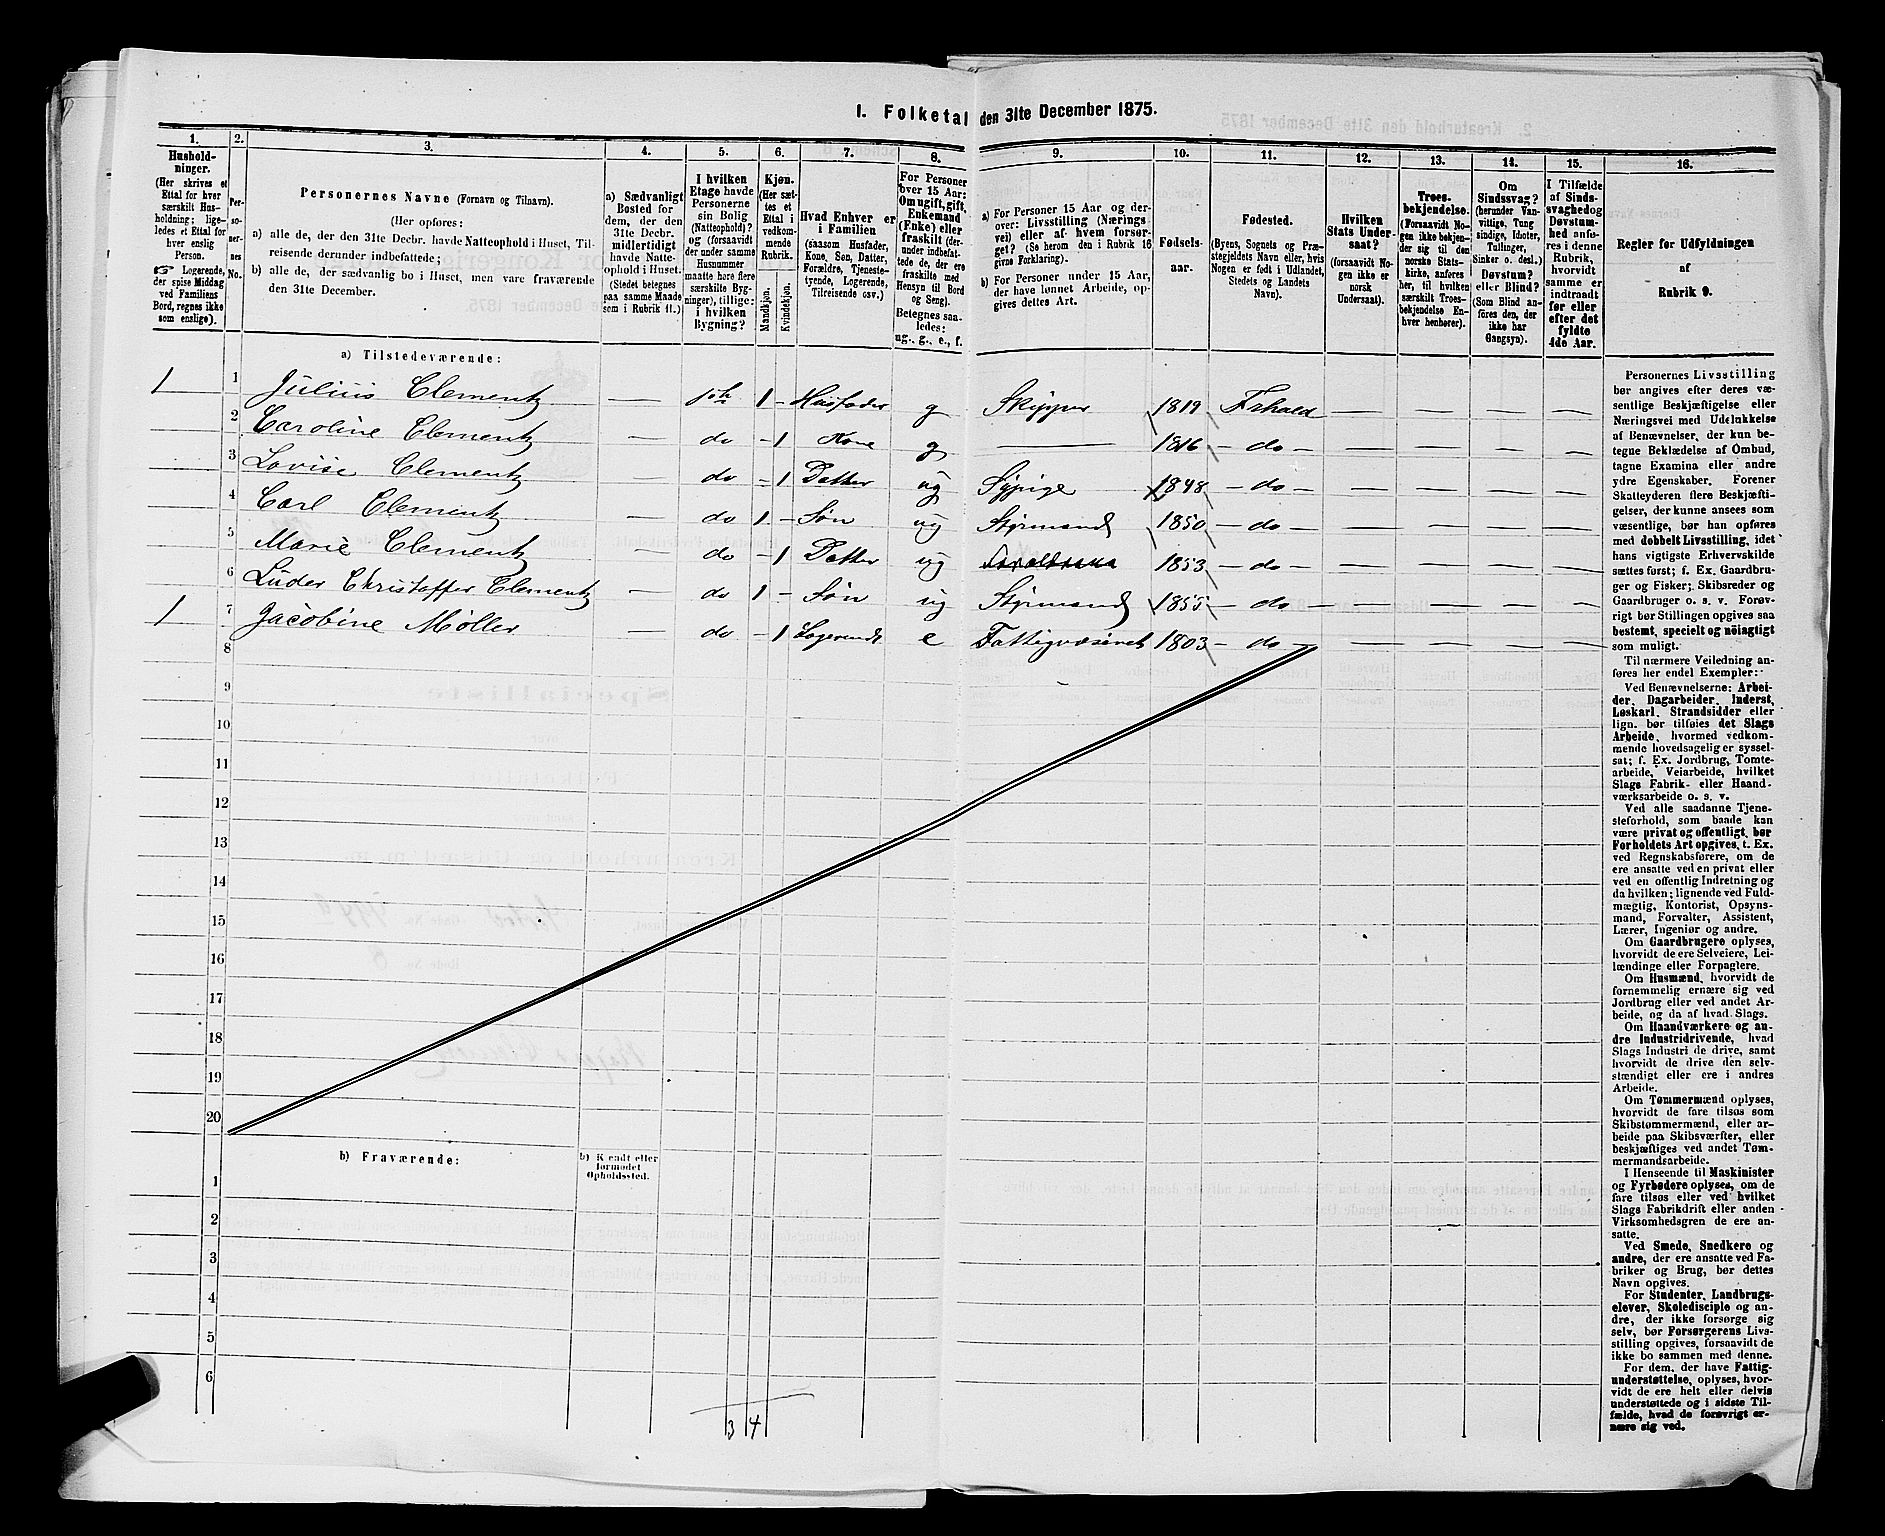 1. Folketal den 31te December 1875.
1.
Husholdninger.
(Her skrives et
Ettal for hver
særskilt Husholdning; ligeledes et Ettal for
hver enslig
Person.
☞ Logerende,
der spise Middag
ved Familiens
Bord, regnes ikke
som enslige).
2.
Personernes No.
3.
Personernes Navne (Fornavn og Tilnavn).
(Her opføres:
a) alle de, der den 31te Decbr. havde Natteophold i Huset, Tilreisende derunder indbefattede;
b) alle de, der sædvanlig bo i Huset, men vare fraværende
den 31te December.
4.
a) Sædvanligt
Bosted for
dem, der den
31te Decbr.
midlertidigt
havde Natteophold i Huset.
(Stedet betegnes
paa samme Maade
som i Rubrik 11.)
5.
I hvilken
Etage havde
Personerne
sin Bolig
(Natteophold)?
og (forsaavidt
der under samme
Husnummer
maatte høre flere
særskilte Bygninger), tillige:
i hvilken
Bygning?
6.
Kjøn.
(Her sættes et
Ettal i
vedkommende
Rubrik.
Mandkjøn.
Kvindekjøn.
7.
Hvad Enhver er
i Familien
(saasom Husfader,
Kone, Søn, Datter,
Forældre, Tjenestetyende, Logerende,
Tilreisende osv.)
8.
For Personer
over 15 Aar:
Om ugift, gift,
Enkemand
(Enke) eller
fraskilt (derunder indbefattede de, der ere
fraskilte med
Hensyn til Bord
og Seng).
Betegnes saaledes:
ug., g., e., f.
9.
a) For Personer 15 Aar og derover: Livsstilling (Næringsvei) eller af hvem forsørget? (Se herom den i Rubrik 16
givne Forklaring).
b) For Personer under 15 Aar,
der have lønnet Arbeide, opgives dettes Art.
10.
Fødselsaar.
11.
Fødested.
(Byens, Sognets og Præstegjeldets Navn eller, hvis
Nogen er født i Udlandet,
Stedets og Landets
Navn).
12.
Hvilken
Stats Undersaat?
(forsaavidt Nogen ikke er
norsk
Undersaat).
13.
Troesbekjendelse.
(Forsaavidt Nogen ikke bekjender sig til den
norske Statskirke, anføres
her, til hvilken
særskilt Troesbekjendelse Enhver henhører).
14.
Om
Sindssvag?
(herunder Vanvittige, Tungsindige, Idioter,
Tullinger,
Sinker o. desl.)
Døvstum?
eller Blind?
(Som Blind anføres den, der
ikke har
Gangsyn).
15.
I Tilfælde
af Sindssvaghed og
Døvstumhed anføres i denne
Rubrik,
hvorvidt
samme er
indtraadt
før eller
efter det
fyldte
4de Aar.
16.
Regler før Udfyldningen
af
Rubrik 9.
a) Tilstedeværende:
1 1 Julius Clementz — 1ste 1 - Husfader g Skipper 1819 Fr.hald — — — —
2 Caroline Clementz — do - 1 Kone g — 1816 - do — — — — —
3 Lovise Clementz — do - 1 Datter ug Sypige 1848 - do — — — — —
4 Carl Clementz — do 1 - Søn ug Styrmand 1850 - do — — — — —
5 Marie Clementz — do - 1 Datter ug 1853 - do — — — — —
6 Lüder Christoffer Clementz — do 1 - Søn ug Styrmand 1855 - do — — — — —
1 7 Jacobine Møller — do - 1 Logerende e Fattigvæsenet 1803 - do — — — — —
8
9
10
11
12
13
14
15
16
17
18
19
20
b) Fraværende:
b) Kjendt eller
formodet
Opholdssted.
1
2
3
4
5
6
3 4
Personernes Livsstilling
bør angives efter deres væsentlige Beskjæftigelse eller
Næringsvei med Udelukkelse
af Benævnelser, der kun betegne Beklædelse af Ombud,
tagne Examina eller andre
ydre Egenskaber. Forener
Skatteyderen flere Beskjæftigelser, der kunne ansees som
væsentlige, bør han opføres
med dobbelt Livsstilling, idet
hans vigtigste Erhvervskilde
sættes først; f. Ex. Gaardbruger og Fisker; Skibsreder og
Gaardbruger o. s. v. Forøvrigt bør Stillingen opgives saa
bestemt, specielt og nöiagtigt
som muligt.
Til nærmere Veiledning anføres her endel Exempler:
Ved Benævnelserne: Arbeider, Dagarbeider, Inderst,
Løskarl, Strandsidder eller
lign. bør tilføies det Slags
Arbeide, hvormed vedkommende hovedsagelig er sysselsat; f. Ex. Jordbrug, Tomtearbeide, Veiarbeide, hvilket
Slags Fabrik- eller Haandværksarbeide o. s. v.
Ved alle saadanne Tjenesteforhold, som baade kan
være privat og offentligt, bør
Forholdets Art opgives, t. Ex.
ved Regnskabsførere, om de
ere ansatte ved en privat eller
ved en offentlig Indretning og
da hvilken; lignende ved Fuldmægtig, Kontorist, Opsynsmand, Forvalter, Assistent,
Lærer, Ingeniør og andre.
Om Gaardbrugere oplyses,
hvorvidt de ere Selveiere, Leilændinge eller Forpagtere.
Om Husmænd, hvorvidt de
fornemmelig ernære sig ved
Jordbrug eller ved andet Arbeide, og da af hvad Slags.
Om Haandværkere og andre Industridrivende, hvad
Slags Industri de drive, samt
hvorvidt de drive den selvstændigt eller ere i andres
Arbeide.
Om Tømmermænd oplyses,
hvorvidt de fare tilsøs som
Skibstømmermænd, eller arbeide paa Skibsværfter, eller
beskjæftiges ved andet Tømmermandsarbeide.
I Henseende til Maskinister
og Fyrbødere oplyses, om de
fare tilsøs eller ved hvilket
Slags Fabrikdrift eller anden
Virksomhedsgren de ere ansatte.
Ved Smede, Snedkere og
andre, der ere ansatte ved Fabriker og Brug, bør dettes
Navn opgives.
For Studenter, Landbrugselever, Skoledisciple og andre, der ikke forsørge sig
selv, bør Forsørgerens Livsstilling opgives, forsaavidt de
ikke bo sammen med denne.
For dem, der have Fattigunderstøttelse, oplyses, hvorvidt de ere helt eller delvis
understøttede og i sidste Tilfælde, hvad de forøvrigt ernære sig ved.